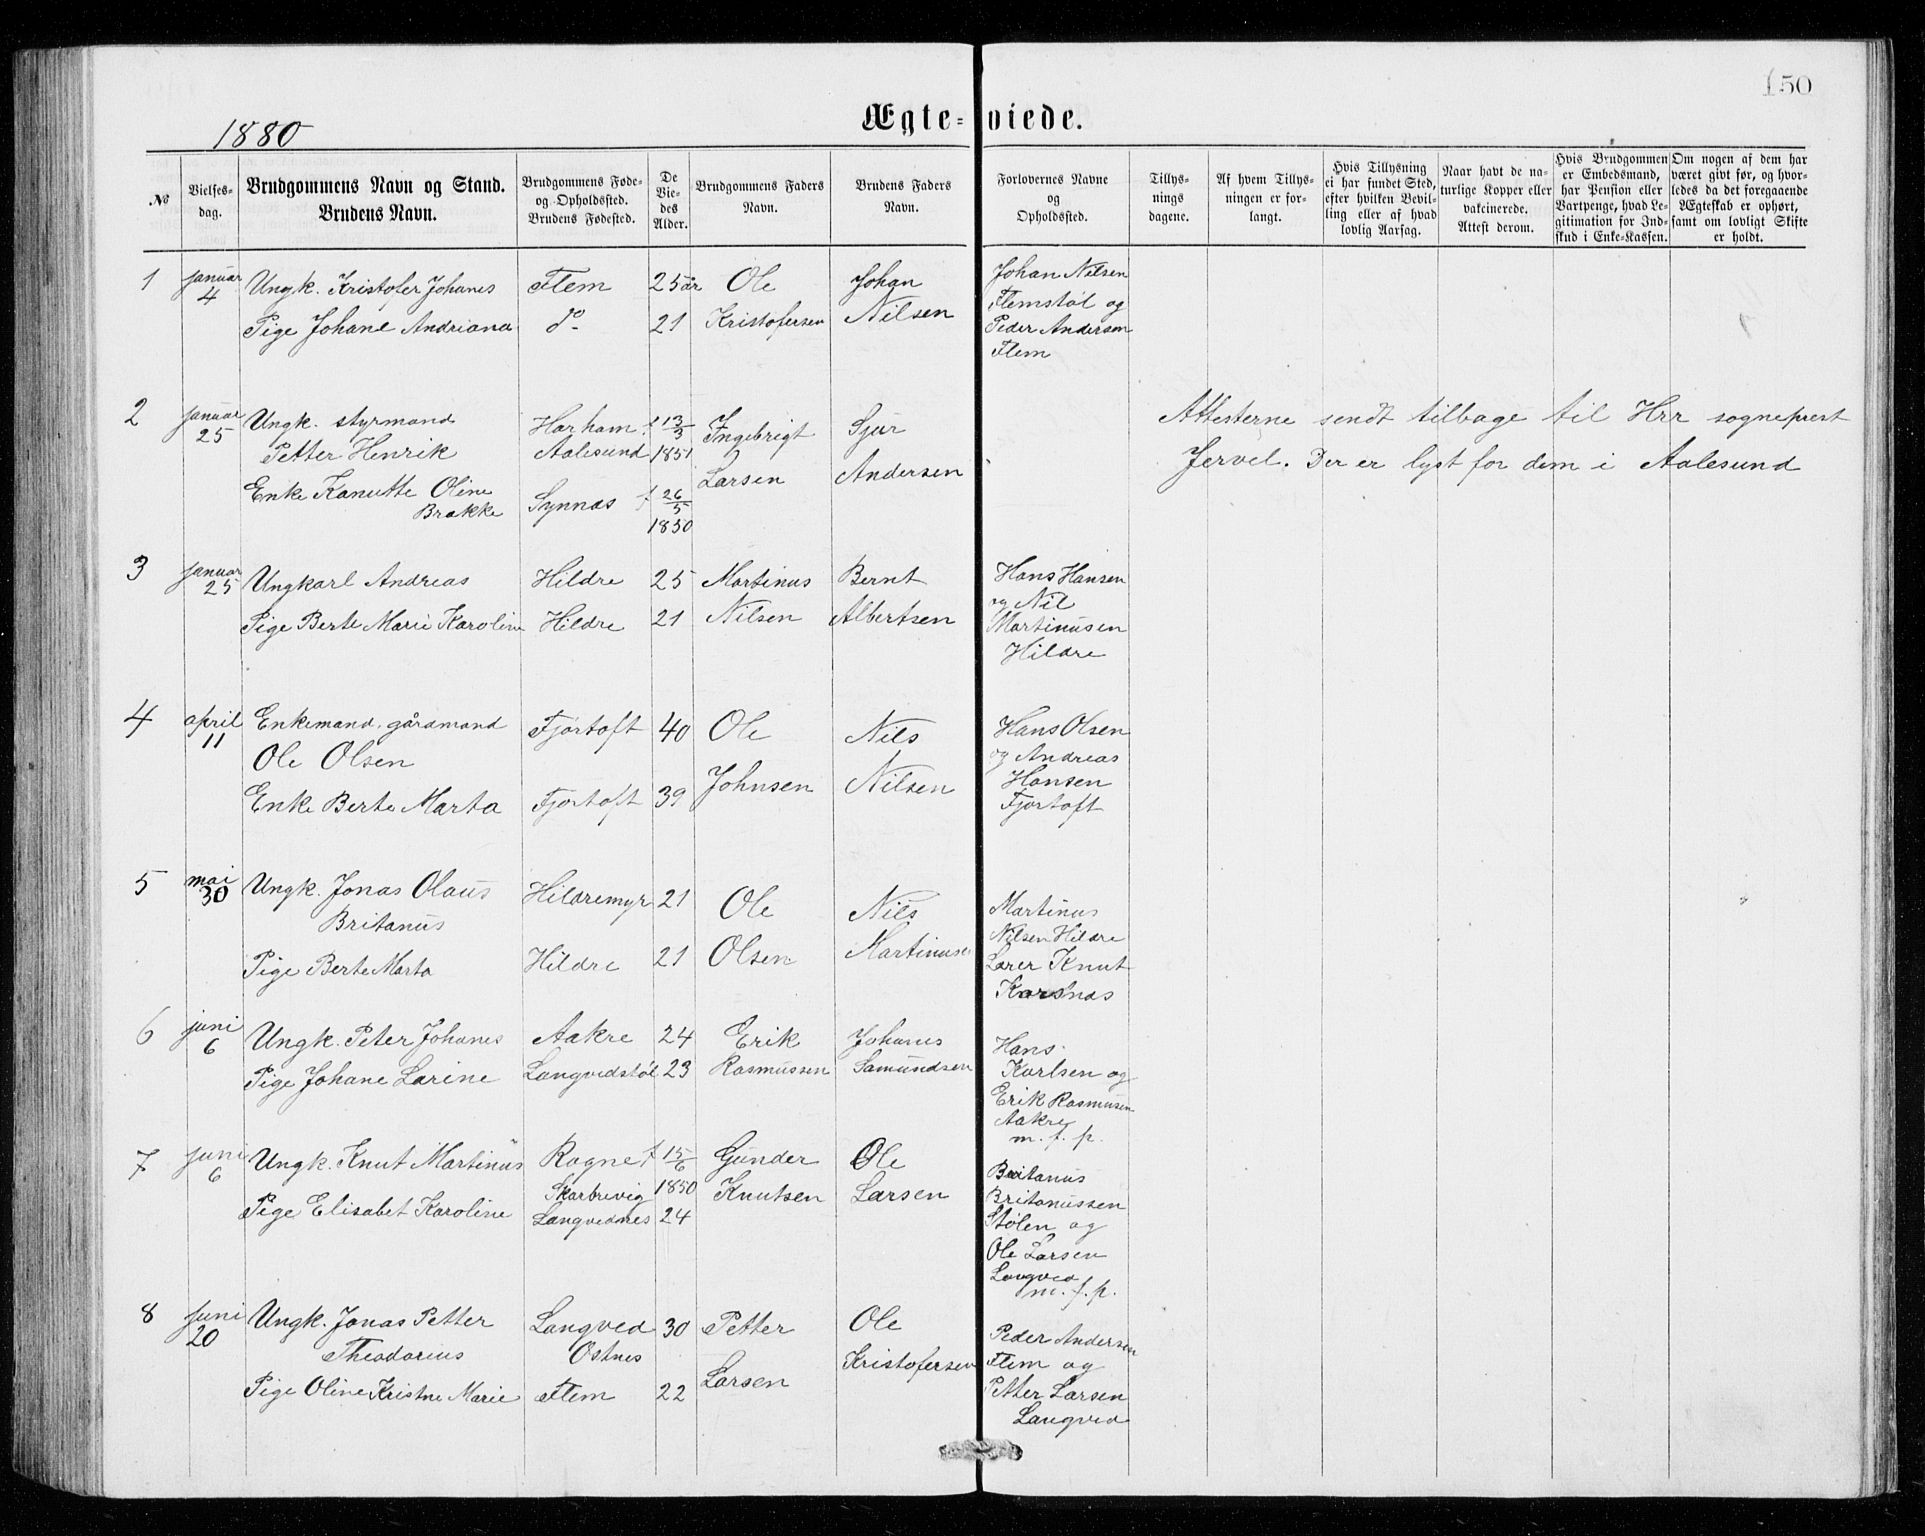 150
1880
Ægte-viede.
№
Vielses-
dag.
Brudgommens Navn og Stand.
Brudens Navn.
Brudgommens Føde-
og Opholdssted.
Brudens Fødested.
De
Vie-
des
Alder.
Brudgommens Faders
Navn.
Brudens Faders
Navn.
Forlovernes Navne
og
Opholdssted.
Tillys-
nings
dagene.
Af hvem Tillys-
ningen er for-
langt.
Hvis Tillysning
ei har fundet Sted,
efter hvilken Bevil-
ling eller af hvad
lovlig Aarsag.
Naar havt de na-
turlige Kopper eller
vakcinerede.
Attest derom.
Hvis Brudgommen
er Embedsmand,
har Pension eller
Vartpenge, hvad Le-
gitimation for Ind-
skud i Enke-Kassen.
Om nogen af dem har
været givt før, og hvor-
ledes da det foregaaende
Ægteskab er ophørt,
samt om lovligt Skifte
er holdt.
1
januar
4
Ungk. Kristofer Johanes
Pige Johane Andriana
Flem
do
25 år
21
Ole
Kristofersen
Johan
Nilsen
Johan Nilsen
Flemstøl og
Peder Andersen
Flem
2
januar
25
Ungk. styrmand
Petter Henrik
Enke Kanutte Oline
Brakke
Harham
Aalesund
Synnæs
f 13/3
1851
f 26/5
1850
Ingebrigt
Larsen
Sjur
Andersen
Attesterne sendt tilbage til Hrr sogneprest
Jervel. Der er lyst for dem i Aalesund
3
januar
25
Ungkarl Andreas
Pige Berte Marie Karoline
Hildre
Hildre
25
21
Martinus
Nilsen
Bernt
Albertsen
Hans Hansen
og Nil
Martinusen
Hildre
4
april
11
Enkemand. gårdmand
Ole Olsen
Enke Berte Marta
Fjørtoft
Fjørtoft
40
39
Ole
Johnsen
Nils
Nilsen
Hans Olsen
og Andreas
Hansen
Fjørtoft
5
mai
30
Ungk. Jonas Olaus
Britanus
Pige Berte Marta
Hildremyr
Hildre
21
21
Ole
Olsen
Nils
Martinusen
Martinus
Nilsen Hildre
Lærer Knut
Karsnæs
6
juni
6
Ungk. Peter Johanes
Pige Johane Larine
Aakre
Langvedstøl
24
23
Erik
Rasmussen
Johanes
Samundsen
Hans
Karlsen og
Erik Rasmusen
Aakre
m. f. p.
7
juni
6
Ungk. Knut Martinus
Pige Elisabet Karoline
Rogne
Skarbrevig
Langvednes
f 15/6
1850
24
Gunder
Knutsen
Ole
Larsen
Britanus
Britanussen
Stølen og
Ole Larsen
Langved
m. f. p.
8
juni
20
Ungk. Jonas Petter
Theodorius
Pige Oline Kristne Marie
Langved
Østnes
Flem
30
22
Petter
Larsen
Ole
Kristofersen
Peder Andersen
Flem og
Petter Larsen
Langved